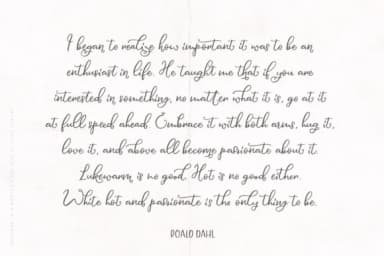 I began to realize how important it was to be an
enthusiast in life. He taught me that if you are
interested in something, no matter what it is, go at it
at full speed ahead. Embrace it with both arms, hug it,
love it, and above all become passionate about it.
Lukewarm is no good. Hot is no good either.
White hot and passionate is the only thing to be.
ROALD DAHL